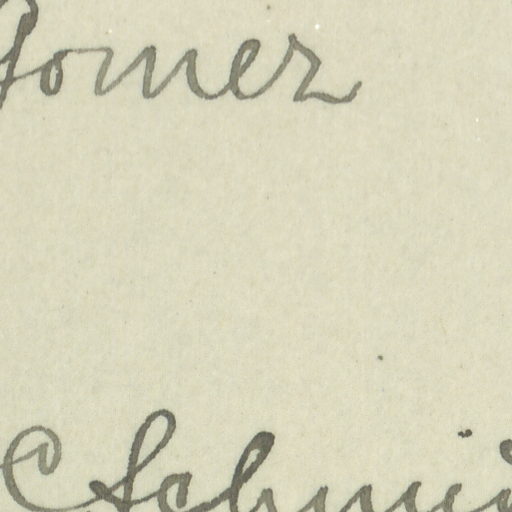 Gomez
C Schmid